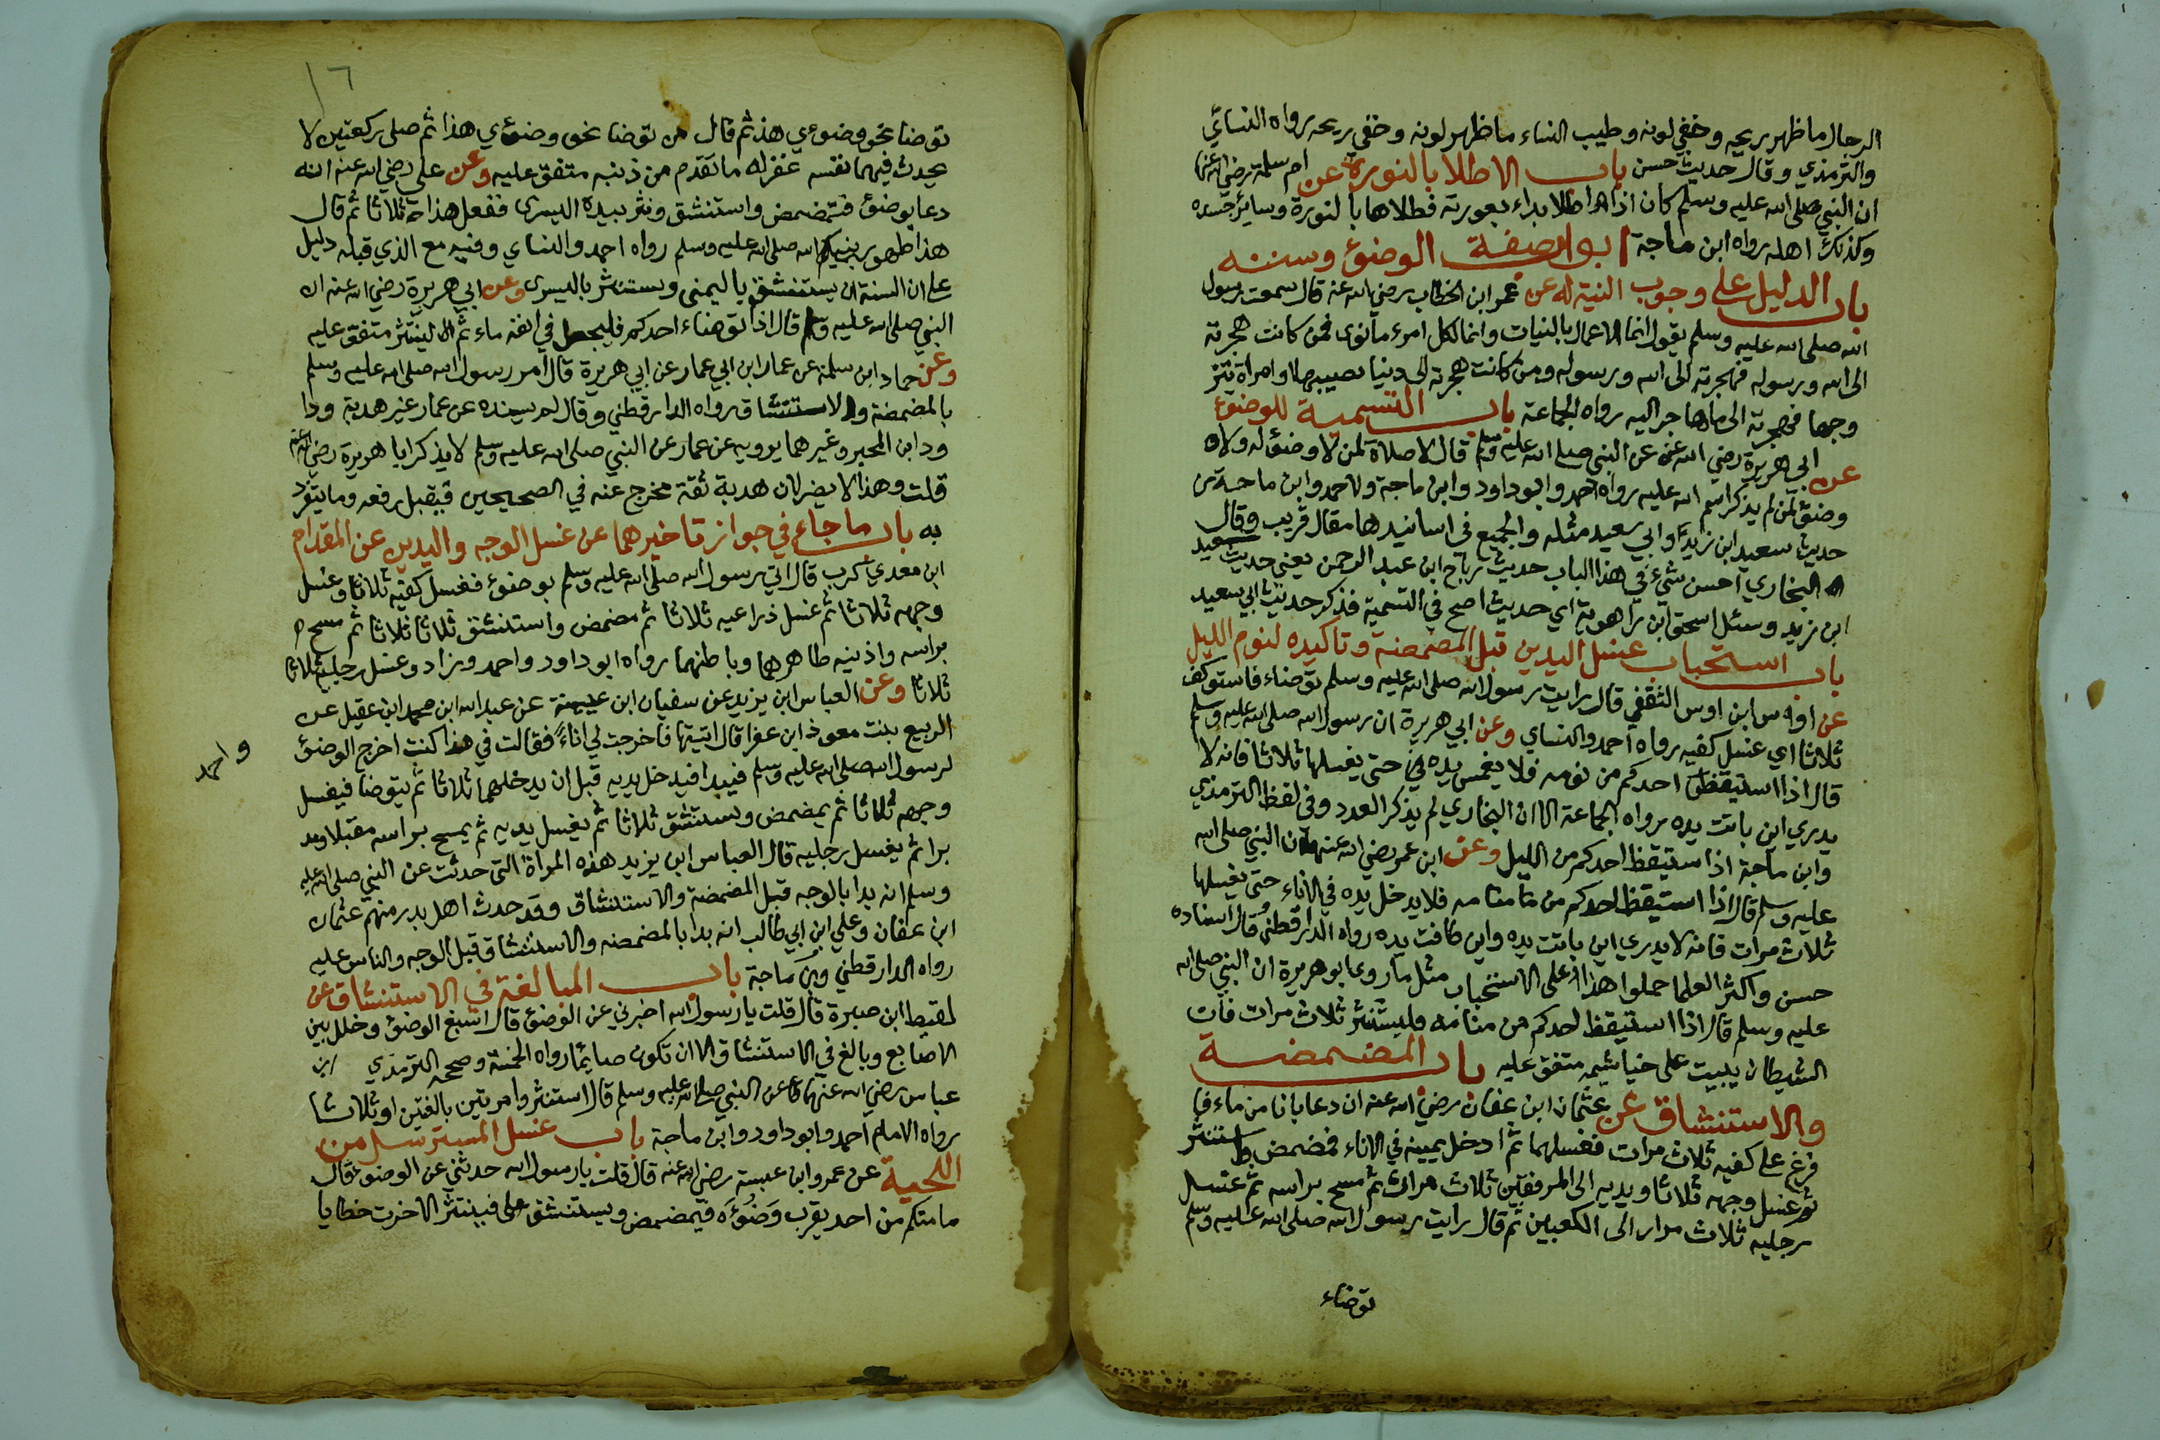 الرجال ما ظهر ريحه وخفي لونه وطيب النساء ما ظهر لونه وخفي ريحه رواه النسائي
والترمذي وقال حديث حسن باب الاطلا بالنورة عن ام سلمة رضي الله عنها
ان النبي صلى الله عليه وسلم كان اذا اطلا بداء بعورته فطلاها بالنورة وسائر جسده
وكذلك اهله رواه ابن ماجة ابواب صفة الوضؤ وسننه
باب الدليل على وجوب النية له عن عمر ابن الخطاب رضي الله عنه قال سمعت رسول
الله صلى الله عليه وسلم يقول انما الاعمال بالنيات وانما لكل امرء ما نوى فمن كانت هجرته
الى الله ورسوله فهجرته الى الله ورسوله ومن كانت هجرته الى دنيا يصيبها او امراة يتز
وجها فهجرته الى ما هاجر اليه رواه الجماعة باب التسمية للوضوء
عن ابي هريرة رضي الله عنه عن النبي صلى الله عليه وسلم قال لا صلاة لمن لا وضؤ له ولا
وضؤ لمن لم يذكر اسم الله عليه رواه احمد وابو داود وابن ماجة ولاحمد وابن ماجة من
حديث سعيد ابن زيد وابي سعيد مثله والجميع في اسانيدها مقال قريب وقال
البخاري احسن شيء في هذا الباب حديث رباح ابن عبد الرحمن يعني حديث سعيد
ابن زيد وسئل اسحق ابن راهوية اي حديث اصح في التسمية فذكر حديث ابي سعيد
باب استحباب غسل اليدين قبل المضمضة وتاكيده لنوم الليل
عن اوس ابن اوس الثقفي قال رايت رسول الله صلى الله عليه وسلم توضاء فاستوكف
ثلاثا اي غسل كفيه رواه احمد والنساي وعن ابي هريرة ان رسول الله صلى الله عليه وسلم
قال اذا استيقظ احدكم من نومه فلا يغمس يده حتى يغسلها ثلاثا فانه لا
يدري اين باتت يده رواه الجماعة الا ان البخاري لم يذكر العدد وفي لفظ الترمذي
وابن ماجة اذا استيقظ احدكم من الليل وعن ابن عمر رضي الله عنهما ان النبي صلى الله
عليه وسلم قال اذا استيقظ احدكم من منامه فلا يدخل يده في الاناء حتى يغسلها
ثلاث مرات فانه لا يدري اين باتت يده واين طافت يده رواه الدارقطني وقال اسناده
حسن واكثر العلما حملوا هذا على الاستحباب مثل ما روى ابو هريرة ان النبي صلى الله
عليه وسلم قال اذا استيقظ احدكم من منامه فليستنثر ثلاث مرات فان
الشيطان يبيت على خياشيمه متفق عليه باب المضمضة
والاستنشاق عن عثمان ابن عفان رضي الله عنه ان دعا بانا من ماء فا
فرغ على كفيه ثلاث مرات فغسلهما ثم ادخل يمينه في الاناء فمضمض واستنثر
ثم غسل وجهه ثلاثا ويديه الى المرفقين ثلاث مرات ثم مسح براسه ثم غسل
رجليه ثلاث مرار الى الكعبين ثم قال رايت رسول الله صلى الله عليه وسلم
توضاء
١٦
توضا نحو وضوءي هذ ثم قال من توضا نحو وضوءي هذا ثم صلى ركعتين لا
يحدث فيهما نفسه غفر له ما تقدم من ذنبه متفق عليه وعن علي رضي الله عنه انه
دعا بوضؤ فتمضمض واستنشق ونثر بيده اليسرى ففعل هذا ثلاثا ثم قال
هذا طهور نبيكم صلى الله عليه وسلم رواه احمد والنساي وفيه مع الذي قبله دليل
على ان السنة ان يستنشق باليمنى ويستنثر باليسرى وعن ابي هريرة رضي الله عنه ان
النبي صلى الله عليه وسلم قال اذا توضاء احدكم فليجعل في انفه ماء ثم لينتثر متفق عليه
وعن حماد ابن سلمة عن عمار ابن ابي عمار عن ابي هريرة قال امر رسول الله صلى الله عليه وسلم
بالمضمضة والاستنشاق رواه الدارقطني وقال لم يسنده عن عمار غير هدبة ودا
ود ابن المحبر وغيرهما يرويه عن عمار عن النبي صلى الله عليه وسلم لا يذكر ابا هريرة رضي الله عنه
قلت وهذا لا يضر لان هدبة ثقة مخرج عنه في الصحيحين فيقبل رفعه وما ينفرد
به باب ما جاء في جواز تاخيرهما عن غسل الوجه واليدين عن المقدام
ابن معدي كرب قال اتي رسول الله صلى الله عليه وسلم بوضؤ فغسل كفيه ثلاثا وغسل
وجهه ثلاثا ثم غسل ذراعيه ثلاثا ثم مضمض واستنشق ثلاثا ثلاثا ثم مسح
براسه واذنيه ظاهرهما وباطنهما رواه ابو داود واحمد وزاد وغسل رجليه ثلاثا
ثلاثا وعن العباس ابن يزيد عن سفيان ابن عيينة عن عبد الله ابن محمد ابن عقيل عن
الربيع بنت معوذ ابن عفرا قال اتيتها فاخرجت لي اناء فقالت في هذا كنت اخرج الوضؤ
لرسول الله صلى الله عليه وسلم فيبدا فيدخل يديه قبل ان يدخلهما ثلاثا ثم يتوضا فيغسل
وجهه ثلاثا ثم يمضمض ويستنشق ثلاثا ثم يغسل يديه ثم يمسح براسه مقبلا ومد
برا ثم يغسل رجليه قال العباس ابن يزيد هذه المراة التي حدثت عن النبي صلى الله عليه
وسلم انه بدا بالوجه قبل المضمضة والاستنشاق وقد حدث اهل بدر منهم عثمان
ابن عفان وعلي ابن ابي طالب انه بدا بالمضمضه والاستنشاق قبل الوجه والناس عليه
رواه الدارقطني وبن ماجة باب المبالغة في الاستنشاق عن
لقيط ابن صبرة قال قلت يا رسول الله اخبرني عن الوضؤ قال اسبغ الوضؤ وخلل بين
الاصابع وبالغ في الاستنشاق الا ان تكون صايما رواه الخمسة وصححه الترمذي ابن
عباس رضي الله عنهما عن النبي صلى الله عليه وسلم قال استنثروا مرتين بالغتين او ثلاثا
رواه الامام احمد وابو داود وابن ماجة باب غسل المسترسل من
اللحية عن عمرو ابن عبسة رضي الله عنه قال قلت يا رسول الله حدثني عن الوضوء قال
ما منكم من احد يقرب وضوءه فيمضمض ويستنشق فينتثر الا خرت خطايا
واحمد